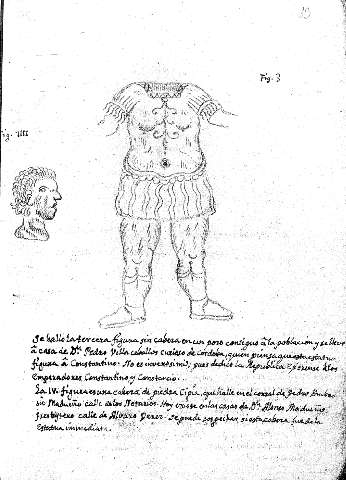 19
Fig. 3
Fig. IIII
Se halló la tercera figura sin cabeza en un pozo contiguo â la poblacion y se llevó
â casa de Dn. Pedro Villa ceballos curioso de Cordoba, quien piensa que esta estatua
figura â Constantino. No es inverisimil, pues dedicó la Republica Eporense â los
Emperadores Constantino y Constancio.
La IV. figura es una cabeza de piedra Cipia, que halle en el corral de Pedro
Madueño calle de los Notarios. Hoy existe en las casas de Dn. Alonso Madueño
Presbytero calle de Alvaro Perez. Se puede sospechar si esta cabeza fue de la
estatua immediata.